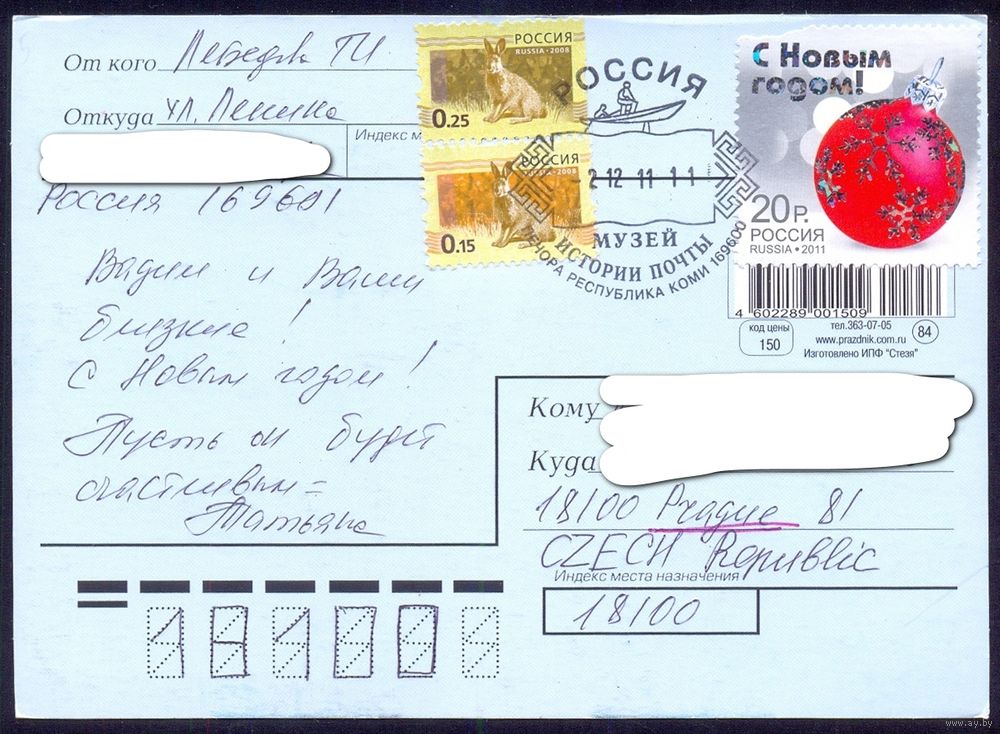 От кого Лебедева ТИ
Откуда ул. Ленина
Индекс м
Россия 169601
РОССИЯ
RUSSIA • 2008
0.25
РОССИЯ
RUSSIA • 2008
0.15
РОССИЯ
2 12 11 1 1
МУЗЕЙ
ИСТОРИИ ПОЧТЫ
ЕЧОРА РЕСПУБЛИКА КОМИ 169600
С Новым
годом!
20 Р.
РОССИЯ
RUSSIA • 2011
4 602289 001509
код цены
150
тел.363-07-05
www.prazdnik.com.ru
Изготовлено ИПФ "Стезя"
84
Вадим и Ваши
близкие!
С Новым годом!
Пусть он будет
счастливым =
Татьяна
Кому
Куда
18100 Prague 81
CZECH Republic
Индекс места назначения
18100
18100
www.ay.by